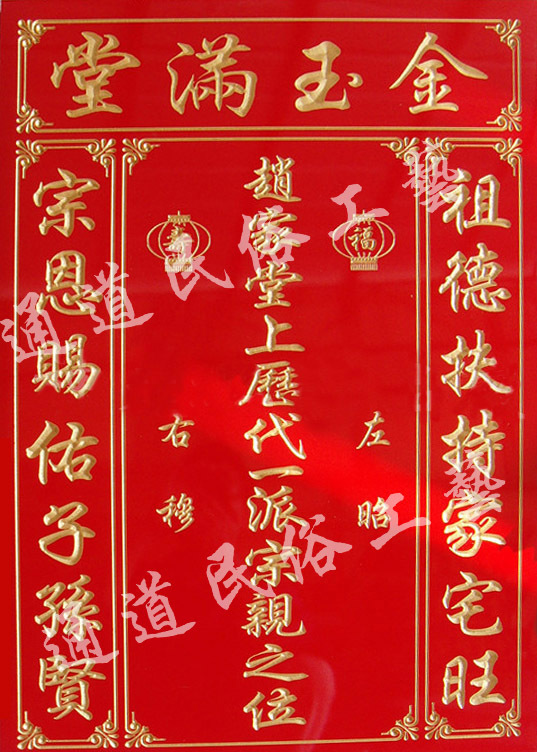 金玉滿堂
祖德扶持家宅旺
福
左昭
趙家堂上歷代一派宗親之位
壽
右穆
宗恩賜佑子孫賢
通道民俗工藝
通道民俗工藝